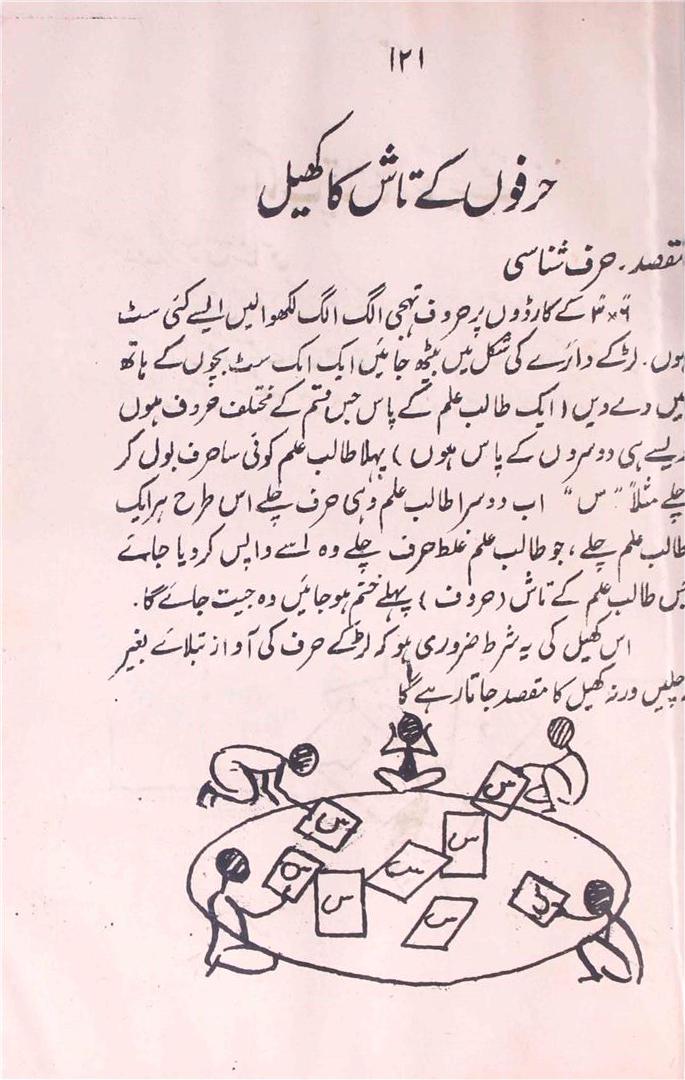 ۱۲۱
حرفوں کے تاش کا کھیل
مقصد۔ حرف شناسی
۳×۶ کے کارڈوں پر حروف تہجی الگ الگ لکھوا لیں ایسے کئی سٹ
ہوں۔ لڑکے دائرے کی شکل میں بیٹھ جائیں ایک ایک سٹ بچوں کے ہاتھ
میں دے دیں (ایک طالب علم کے پاس جس قسم کے مختلف حروف ہوں
ویسے ہی دوسروں کے پاس ہوں) پہلا طالب علم کوئی سا حرف بول کر
چلے مثلاً "س" اب دوسرا طالب علم وہی حرف چلے اس طرح ہر ایک
طالب علم چلے، جو طالب علم غلط حرف چلے وہ اسے واپس کر دیا جائے
جس طالب علم کے تاش (حروف) پہلے ختم ہو جائیں وہ جیت جائے گا۔
اس کھیل کی یہ شرط ضروری ہو کہ لڑکے حرف کی آواز بتلائے بغیر
نہ چلیں ورنہ کھیل کا مقصد جاتا رہے گا
س
س
س
س
س
س
س
س